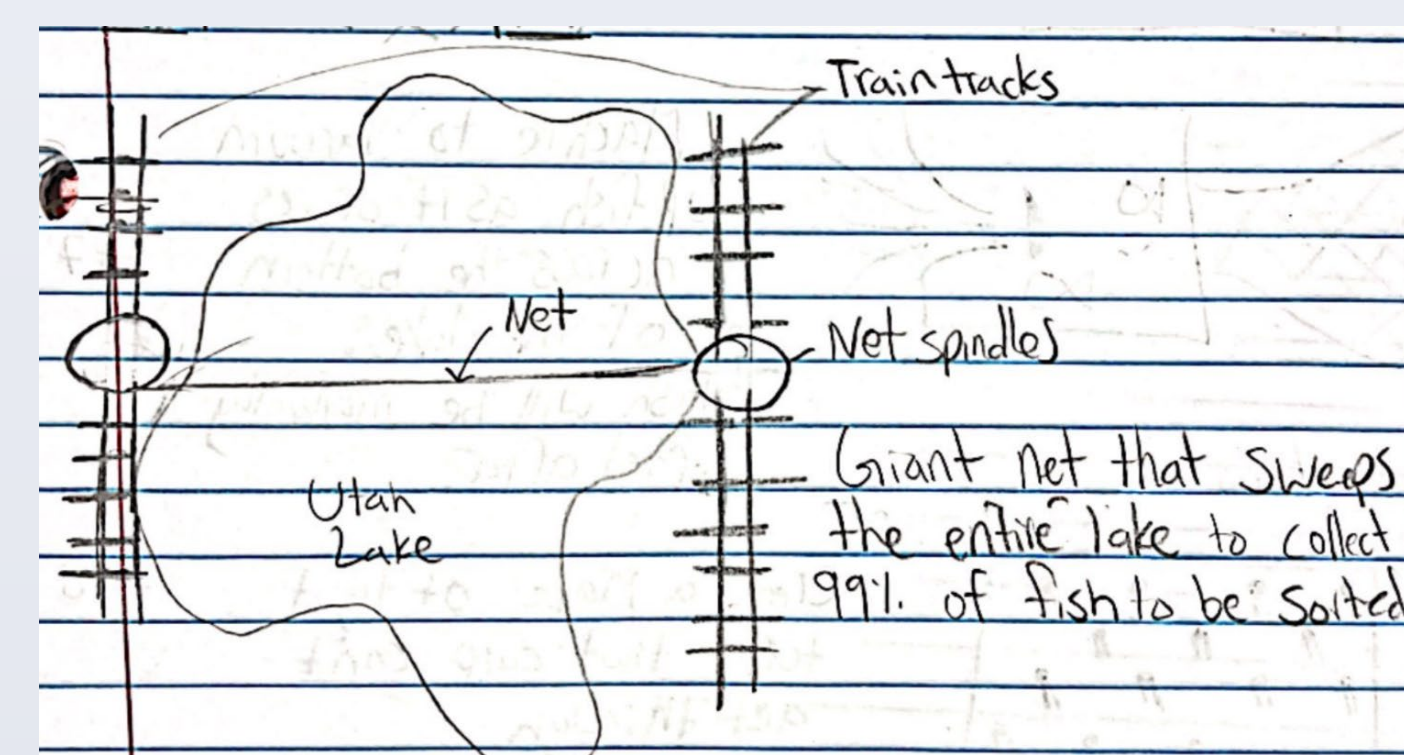 Train tracks
Net
Net spindles
Utah
Lake
Giant net that sweeps
the entire lake to collect
99% of fish to be sorted